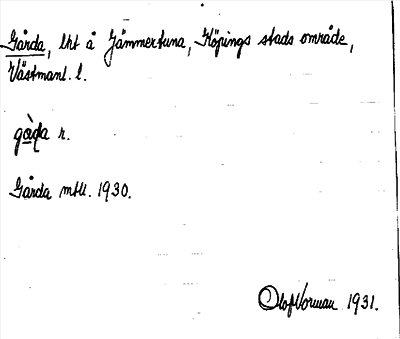 Gårda, lht å Jämmertuna, Köpings stads område,
Västmanl. l.
gàḍa r.
Gårda mtll. 1930.
Olof Vorman 1931.